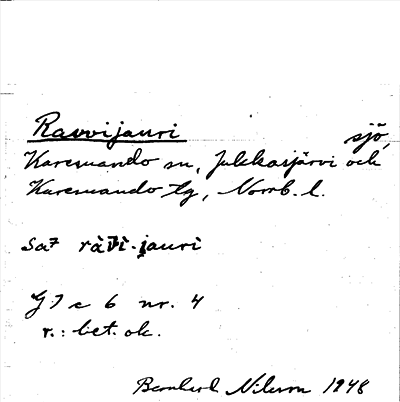 Ravvijauri sjö,
Karesuando sn, Jukkasjärvi och
Karesuando tg, Norrb. l.
Sa7 -jauri
G 7 c 6 nr. 4
r.: bet. ok.
Bernhard Nilsson 1948